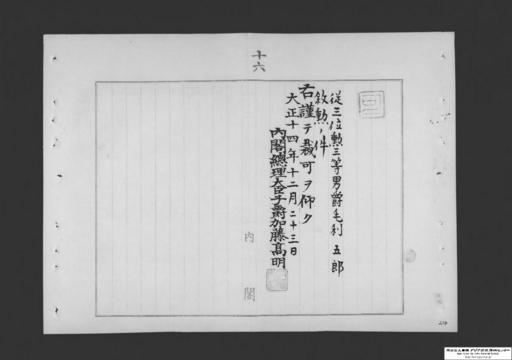 十六
従三位勲三等男爵毛利五郎
敘勲ノ件
右謹テ裁可ヲ仰ク
大正十四年十二月二十三日
内閣總理大臣子爵加藤高明
内閣